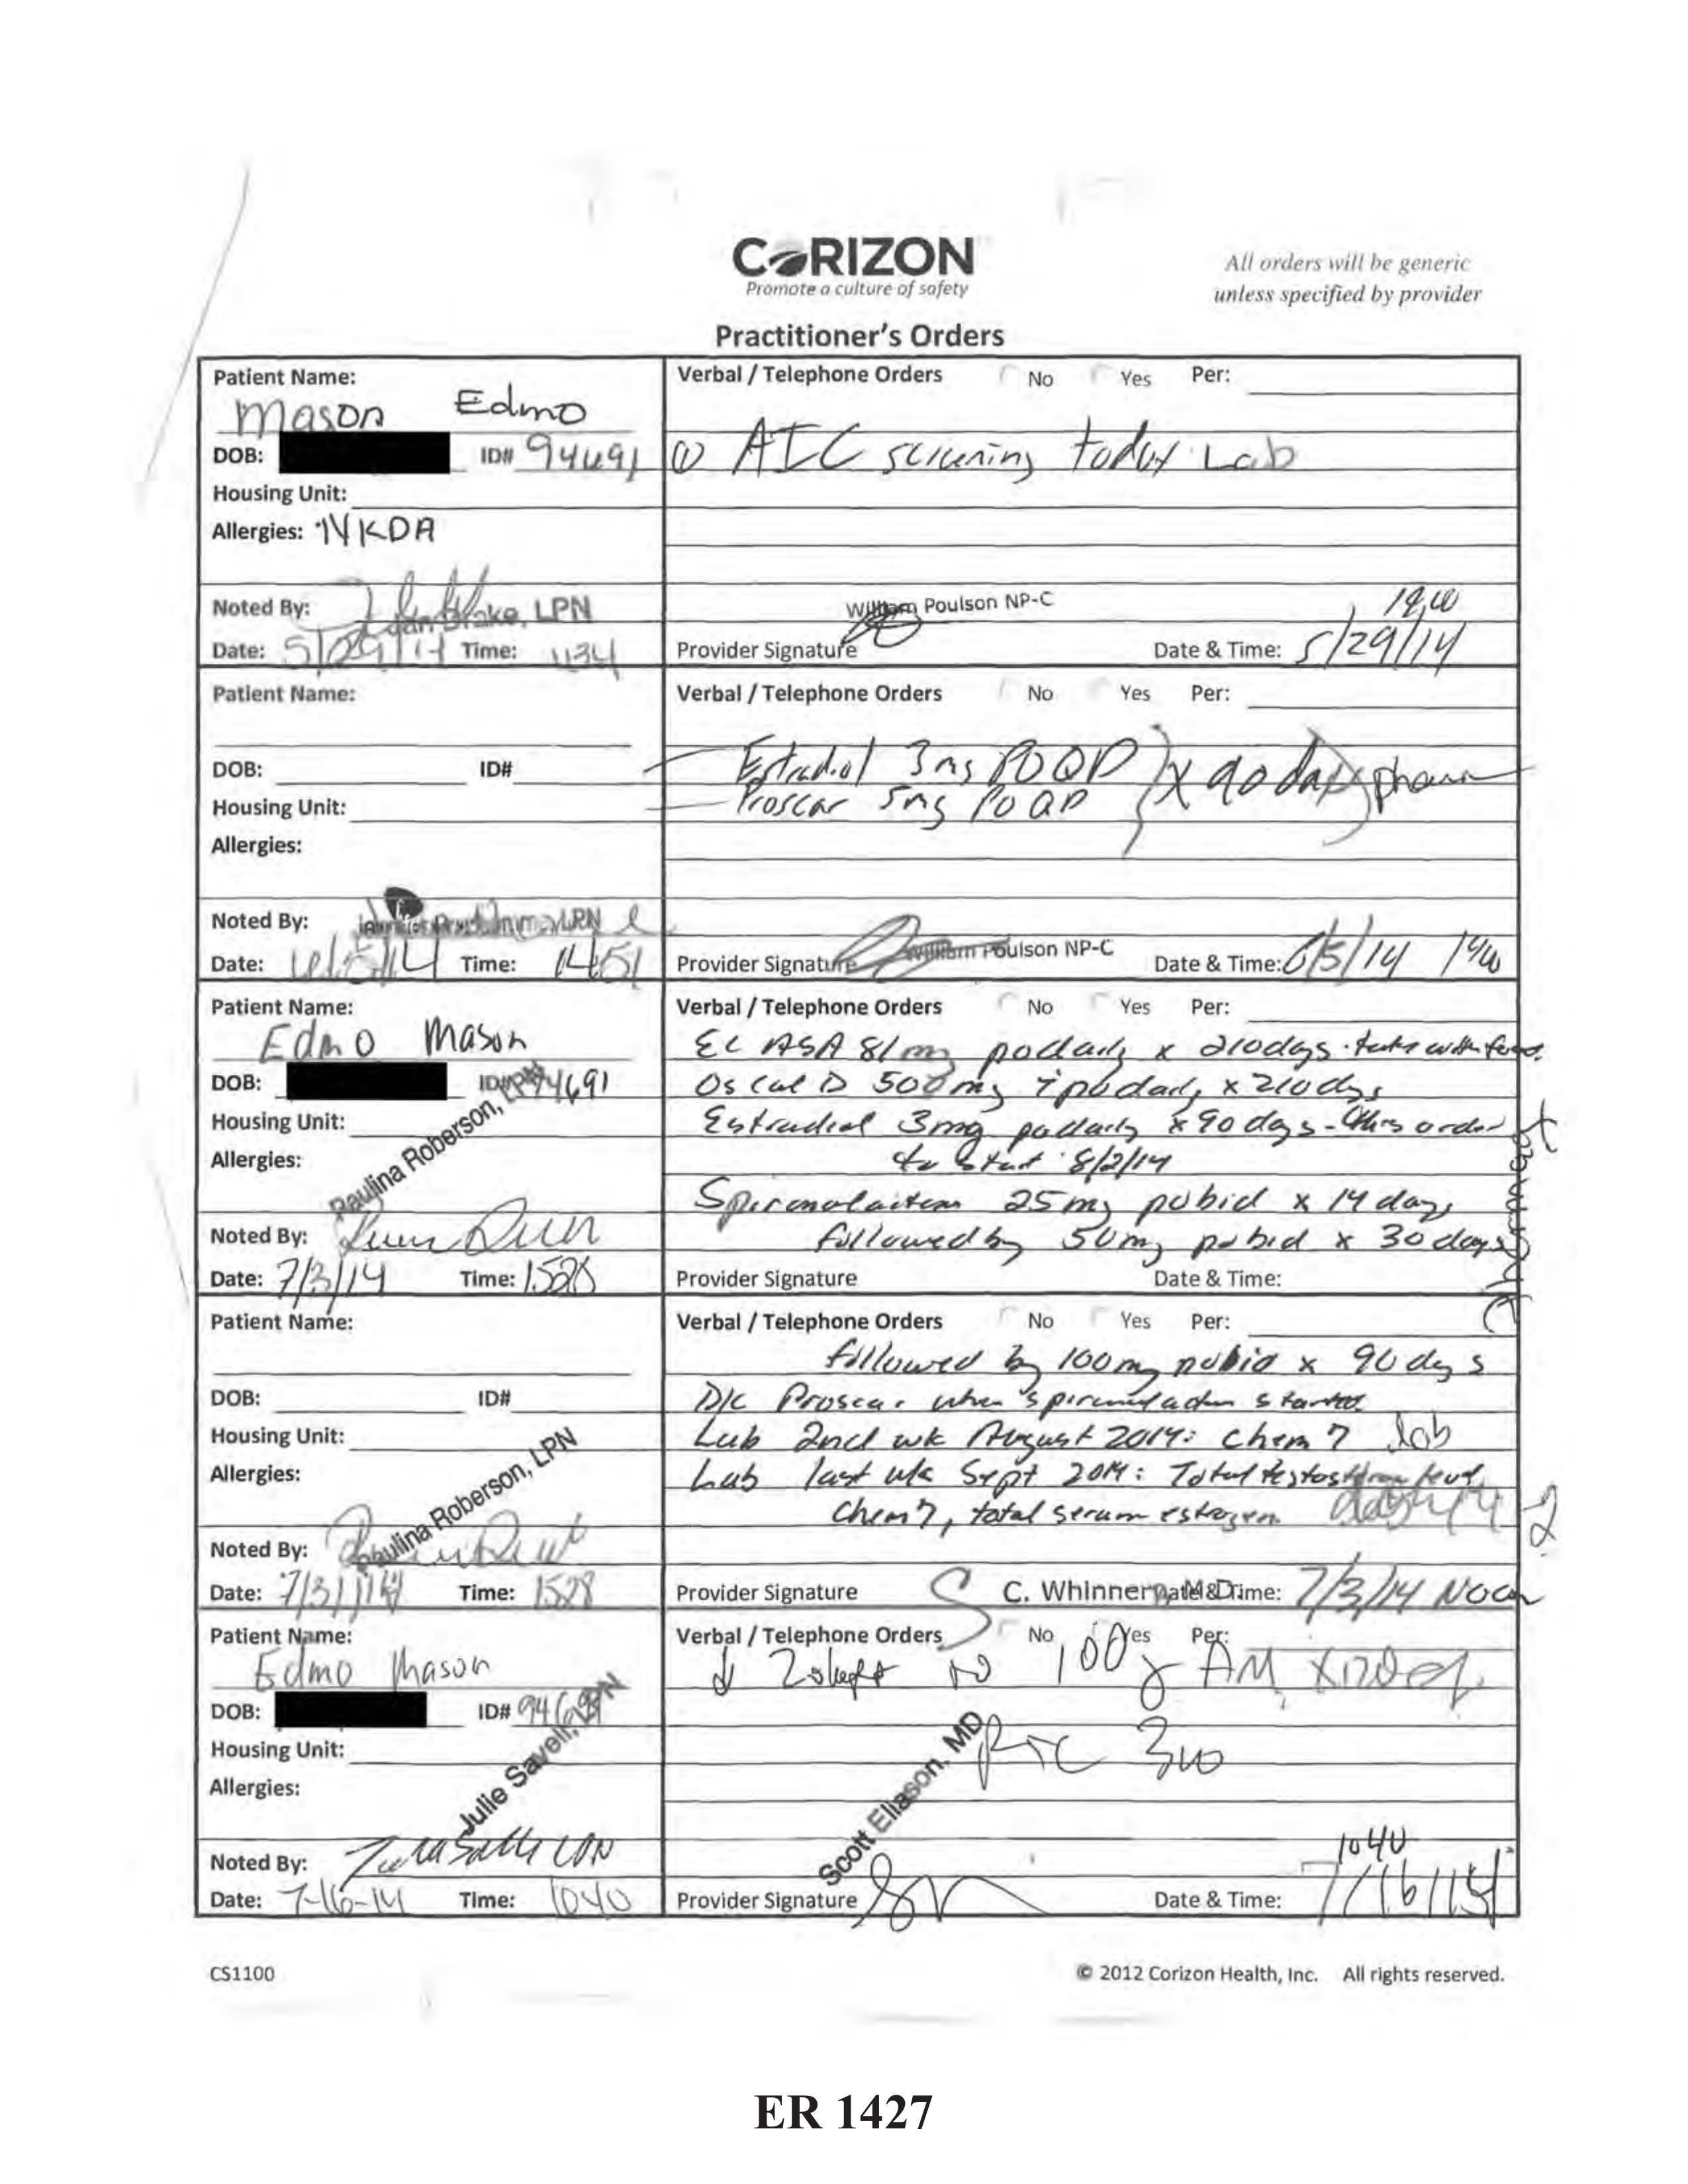 CORIZON
Promote a culture of safety
All orders will be generic
unless specified by provider
Practitioner's Orders
Patient Name:
Mason Edmo
DOB: ID# 94691
Housing Unit:
Allergies: NKDA
Noted By: Blake, LPN
Date: 5/29/14 Time:
Verbal / Telephone Orders No Yes Per:
① AIC screening today Lab
William Poulson NP-C
Provider Signature Date & Time: 5/29/14
Patient Name:
DOB: ID#
Housing Unit:
Allergies:
Noted By: LPN
Date: 6/5/14 Time: 1451
Verbal / Telephone Orders No Yes Per:
Estradiol 3mg PO QD
Proscar 5mg PO QD
x 90 days pharm
William Poulson NP-C
Provider Signature Date & Time: 6/5/14
Patient Name:
Edmo Mason
DOB: ID# 94691
Housing Unit:
Allergies:
Paulina Roberson, LPN
Noted By:
Date: 7/3/14 Time: 1528
Verbal / Telephone Orders No Yes Per:
EC ASA 81mg po daily x 210 days - take with food.
Os Cal D 500mg i po daily x 210 dys
Estradiol 3mg po daily x 90 days - this order
to start 8/2/14
Spironolactone 25mg po bid x 14 days
followed by 50mg po bid x 30 days
Provider Signature Date & Time:
Patient Name:
DOB: ID#
Housing Unit:
Allergies:
Paulina Roberson, LPN
Noted By:
Date: 7/3/14 Time: 1528
Verbal / Telephone Orders No Yes Per:
followed by 100mg po bid x 90 dys
D/C Proscar when spironolactone started
Lab 2nd wk August 2014: chem 7 lab
Lab last wk Sept 2014: Total testosterone level,
chem 7, total serum estrogen
Provider Signature C. Whinnery, M.D. Date & Time: 7/3/14 Noon
Patient Name:
Edmo Mason
DOB: ID# 94691
Housing Unit:
Allergies:
Julie Savell, LPN
Noted By:
Date: 7-16-14 Time: 1040
Verbal / Telephone Orders No Yes Per:
↓ Zoloft to 100 AM
RTC
Scott Eliason, MD
1040
Provider Signature Date & Time: 7/16/14
CS1100
© 2012 Corizon Health, Inc. All rights reserved.
ER 1427